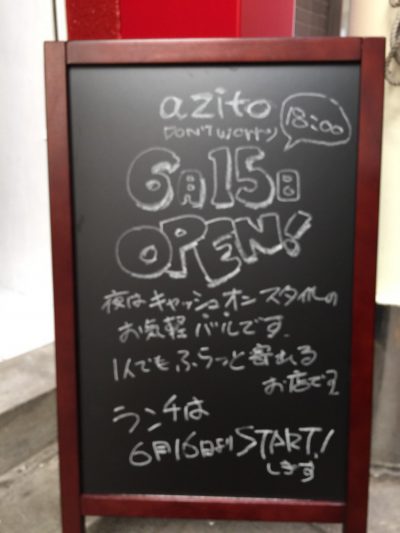 azito
DON'T WORRY
18:00
6月15日
OPEN!
夜はキャッシュオンスタイルの
お気軽バルです.
1人でもふらっと寄れる
お店です
ランチは
6月16日よりSTART!
します